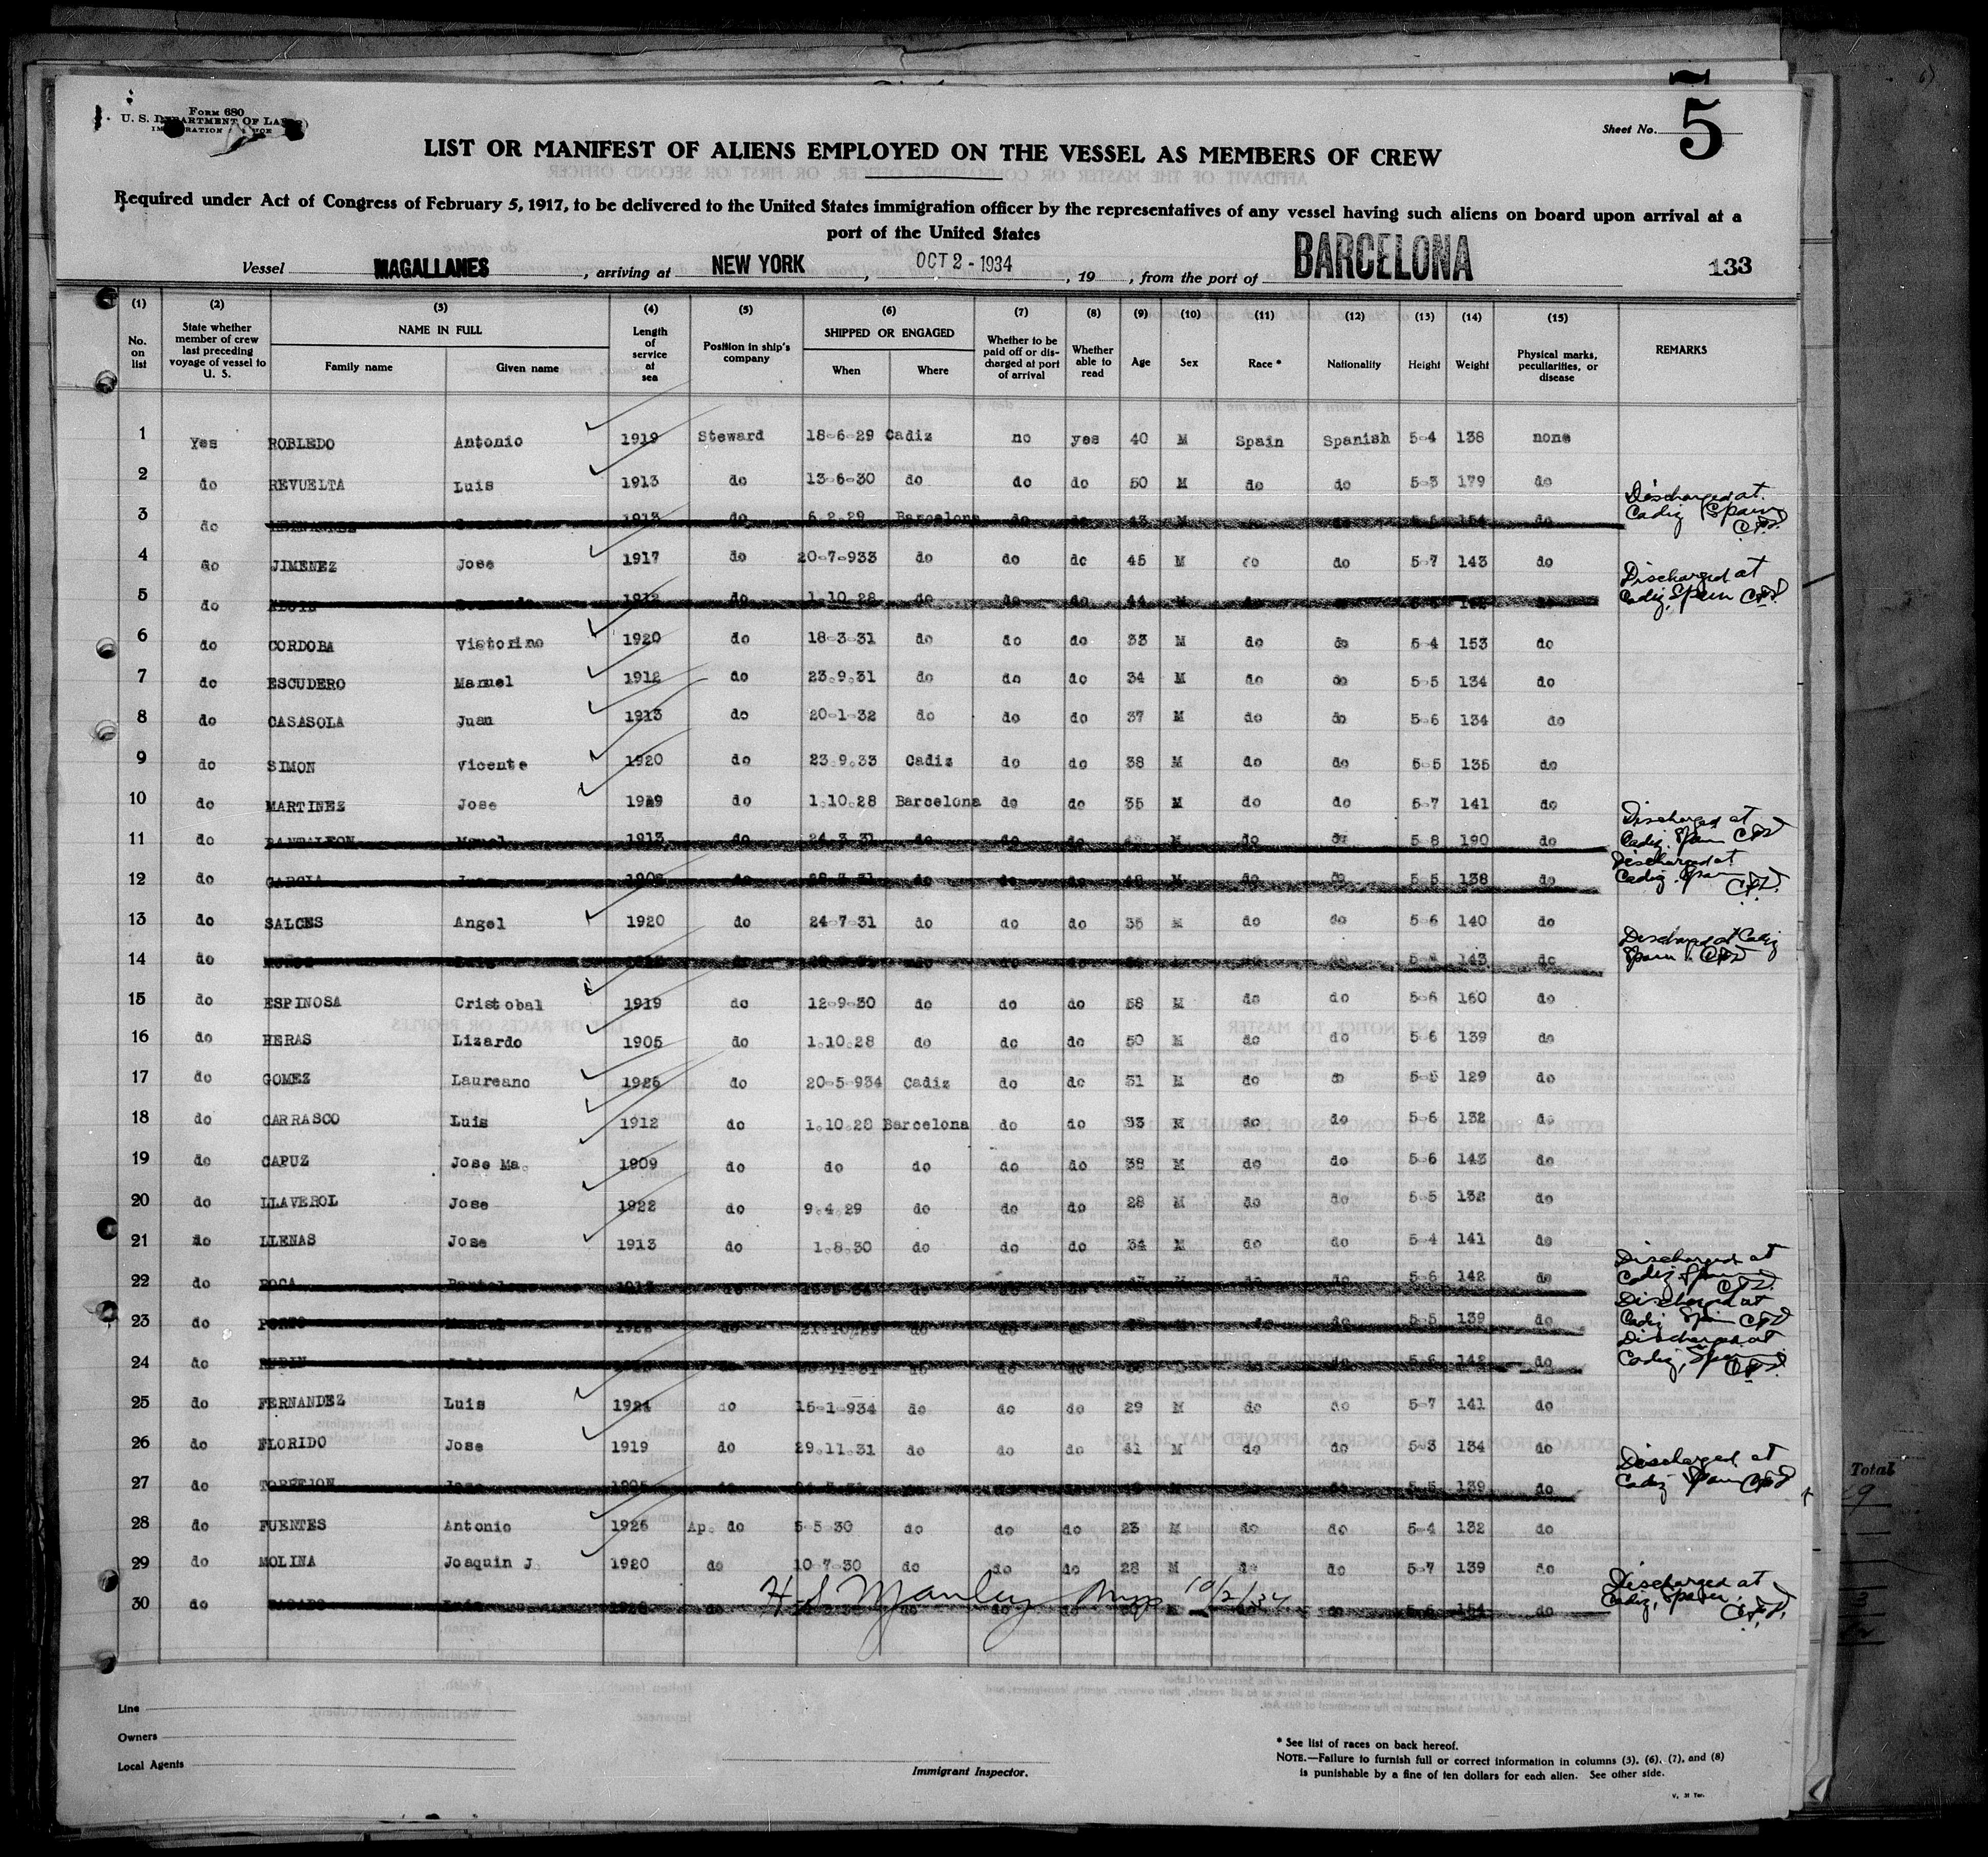 Form 680
U. S. DEPARTMENT OF LABOR
IMMIGRATION SERVICE
Sheet No. 5
LIST OR MANIFEST OF ALIENS EMPLOYED ON THE VESSEL AS MEMBERS OF CREW
Required under Act of Congress of February 5, 1917, to be delivered to the United States immigration officer by the representatives of any vessel having such aliens on board upon arrival at a
port of the United States
Vessel MAGALLANES, arriving at NEW YORK, OCT 2 - 1934, 19, from the port of BARCELONA 133
(1) (2) (3) (4) (5) (6) (7) (8) (9) (10) (11) (12) (13) (14) (15)
No. on list
State whether member of crew last preceding voyage of vessel to U. S.
NAME IN FULL
Family name Given name
Length of service at sea
Position in ship's company
SHIPPED OR ENGAGED
When Where
Whether to be paid off or discharged at port of arrival
Whether able to read
Age Sex Race * Nationality Height Weight
Physical marks, peculiarities, or disease
REMARKS
1 Yes ROBLEDO Antonio 1919 Steward 18-6-29 Cadiz no yes 40 M Spain Spanish 5-4 138 none
2 do REVUELTA Luis 1913 do 13-6-30 do do do 50 M do do 5-3 179 do
3 do 1913 do 6.2.29 Barcelona do do 43 M do 5-6 154 do Discharged at Cadiz (Spain)
4 do JIMENEZ Jose 1917 do 20-7-933 do do do 45 M do do 5-7 143 do
5 do 1912 do 1.10.28 do do do 44 M do do do Discharged at Cadiz, Spain
6 do CORDOBA Victorino 1920 do 18-3-31 do do do 33 M do do 5-4 153 do
7 do ESCUDERO Manuel 1912 do 23.9.31 do do do 34 M do do 5-5 134 do
8 do CASASOLA Juan 1913 do 20-1-32 do do do 37 M do do 5-6 134 do
9 do SIMON Vicente 1920 do 23.9.33 Cadiz do do 38 M do do 5-5 135 do
10 do MARTINEZ Jose 1929 do 1.10.28 Barcelona do do 35 M do do 5-7 141 do
11 do PANTALEON Mguel 1913 do 24.3.31 do do do M do do 5 8 190 do Discharged at Cadiz, Spain
12 do GARCIA do do do do M do do 5-5 138 do Discharged at Cadiz, Spain
13 do SALCES Angel 1920 do 24-7-31 do do do 35 M do do 5-6 140 do
14 do Luis do do do do do 143 do Discharged at Cadiz Spain
15 do ESPINOSA Cristobal 1919 do 12-9-30 do do do 58 M do do 5-6 160 do
16 do HERAS Lizardo 1905 do 1.10.28 do do do 50 M do do 5-6 139 do
17 do GOMEZ Laureano 1926 do 20-5-934 Cadiz do do 31 M do do 5-5 129 do
18 do CARRASCO Luis 1912 do 1.10.28 Barcelona do do 33 M do do 5-6 132 do
19 do CAPUZ Jose Ma. 1909 do do do do do 38 M do do 5-6 143 do
20 do LLAVEROL Jose 1922 do 9.4.29 do do do 28 M do do 5-5 132 do
21 do LLENAS Jose 1913 do 1.8.30 do do do 34 M do do 5-4 141 do
22 do ROCA do do do do do 5-6 142 do Discharged at Cadiz, Spain
23 do do do do do do 5-5 139 do Discharged at Cadiz Spain
24 do RUBIN do do do do do 5-6 142 do Discharged at Cadiz, Spain
25 do FERNANDEZ Luis 1924 do 15-1-934 do do do 29 M do do 5-7 141 do
26 do FLORIDO Jose 1919 do 29.11.31 do do do 41 M do do 5-3 134 do
27 do TORREJON Jose do do do do do 5-5 139 do Discharged at Cadiz Spain
28 do FUENTES Antonio 1926 Ap. do 5-5-30 do do do 23 M do do 5-4 132 do
29 do MOLINA Joaquin J. 1920 do 10-7-30 do do do 28 M do do 5-7 139 do
30 do Luis do do do do do 5-6 154 do Discharged at Cadiz, Spain
H S Manley Insp 10/2/34
Line
Owners
Local Agents
Immigrant Inspector.
* See list of races on back hereof.
NOTE.—Failure to furnish full or correct information in columns (3), (6), (7), and (8)
is punishable by a fine of ten dollars for each alien. See other side.
Total